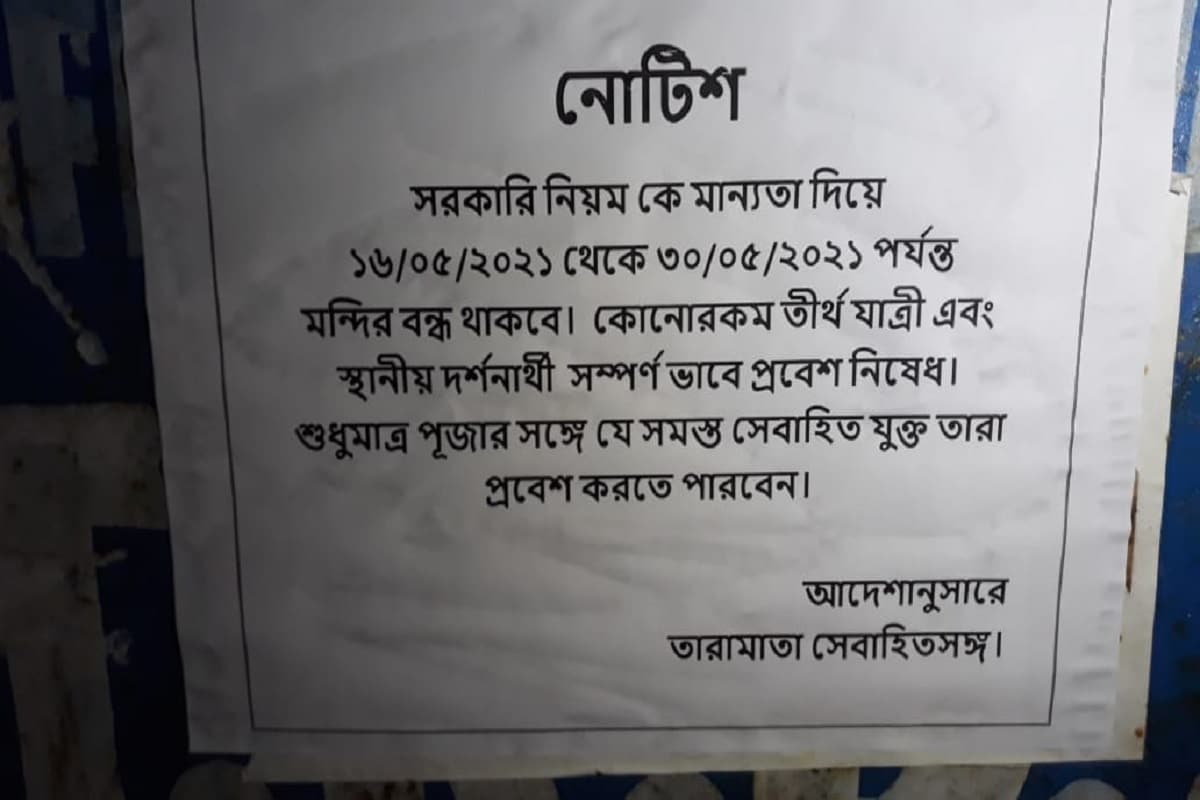 নোটিশ
সরকারি নিয়ম কে মান্যতা দিয়ে
১৬/০৫/২০২১ থেকে ৩০/০৫/২০২১ পর্যন্ত
মন্দির বন্ধ থাকবে। কোনোরকম তীর্থ যাত্রী এবং
স্থানীয় দর্শনার্থী সম্পর্ণ ভাবে প্রবেশ নিষেধ।
শুধুমাত্র পূজার সঙ্গে যে সমস্ত সেবাহিত যুক্ত তারা
প্রবেশ করতে পারবেন।
আদেশানুসারে
তারামাতা সেবাহিতসঙ্গ।